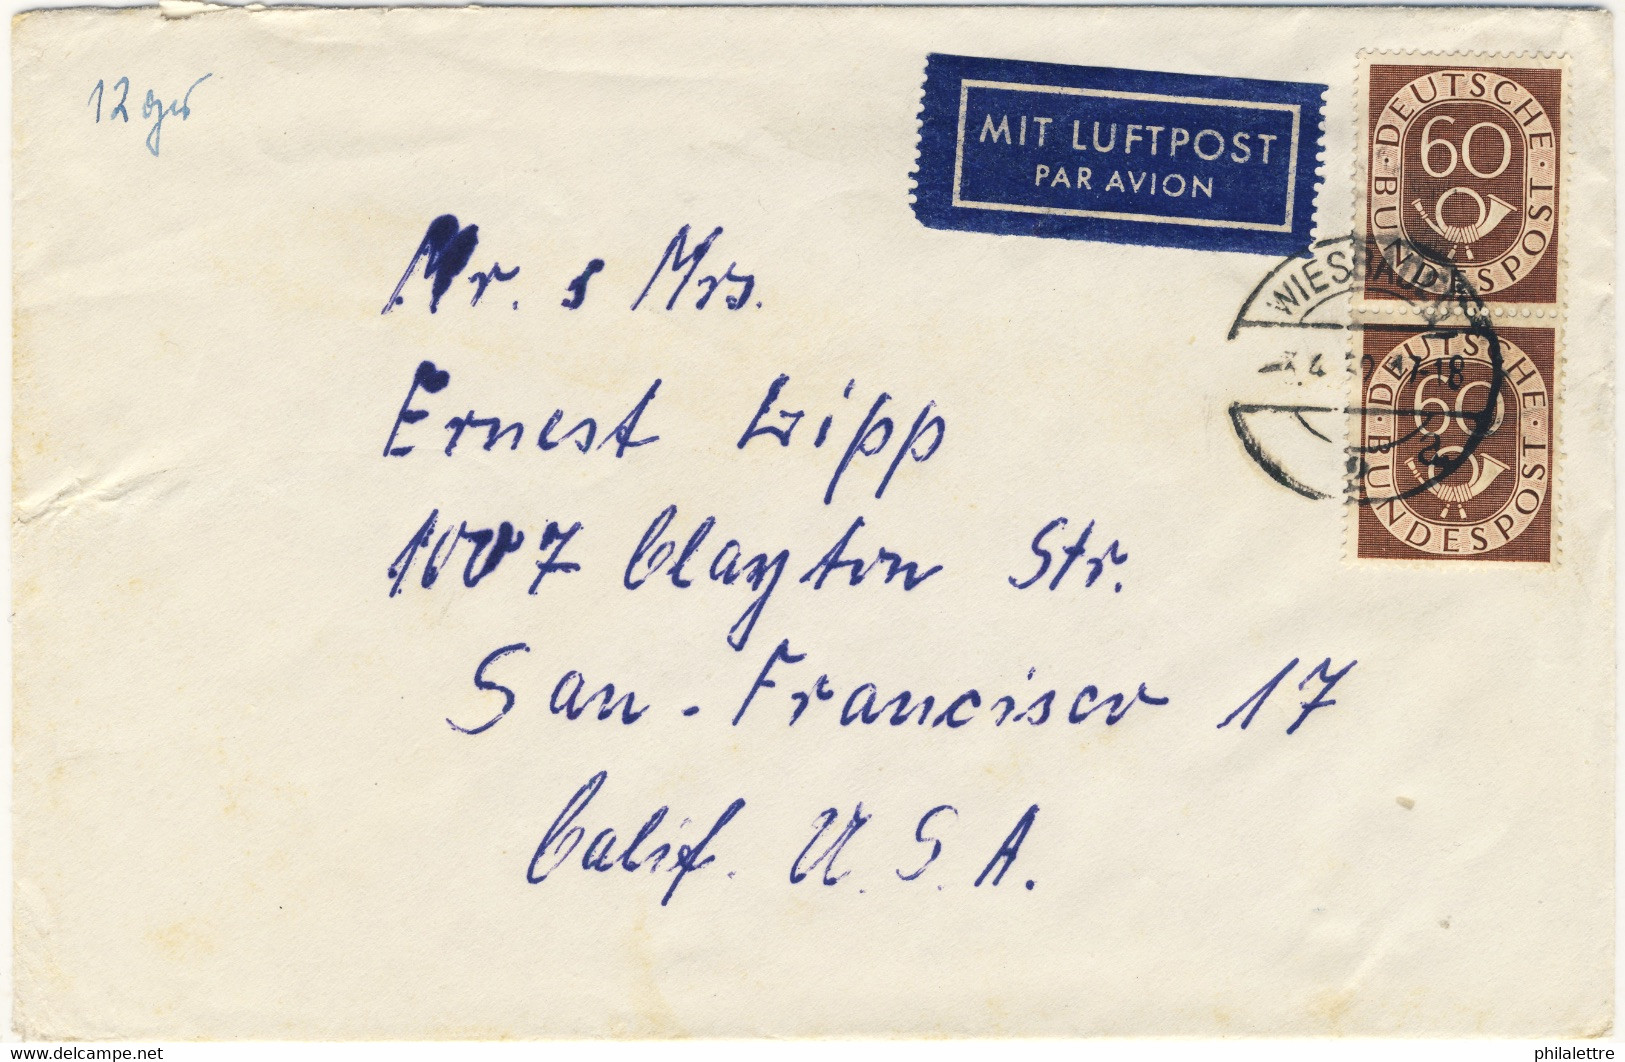 12 gr
MIT LUFTPOST
PAR AVION
DEUTSCHE BUNDESPOST
60
WIESBADEN
17-18
DEUTSCHE BUNDESPOST
60
Mr. & Mrs.
Ernest Lipp
1007 Clayton Str.
San-Francisco 17
Calif. U.S.A.
www.delcampe.net
philalettre